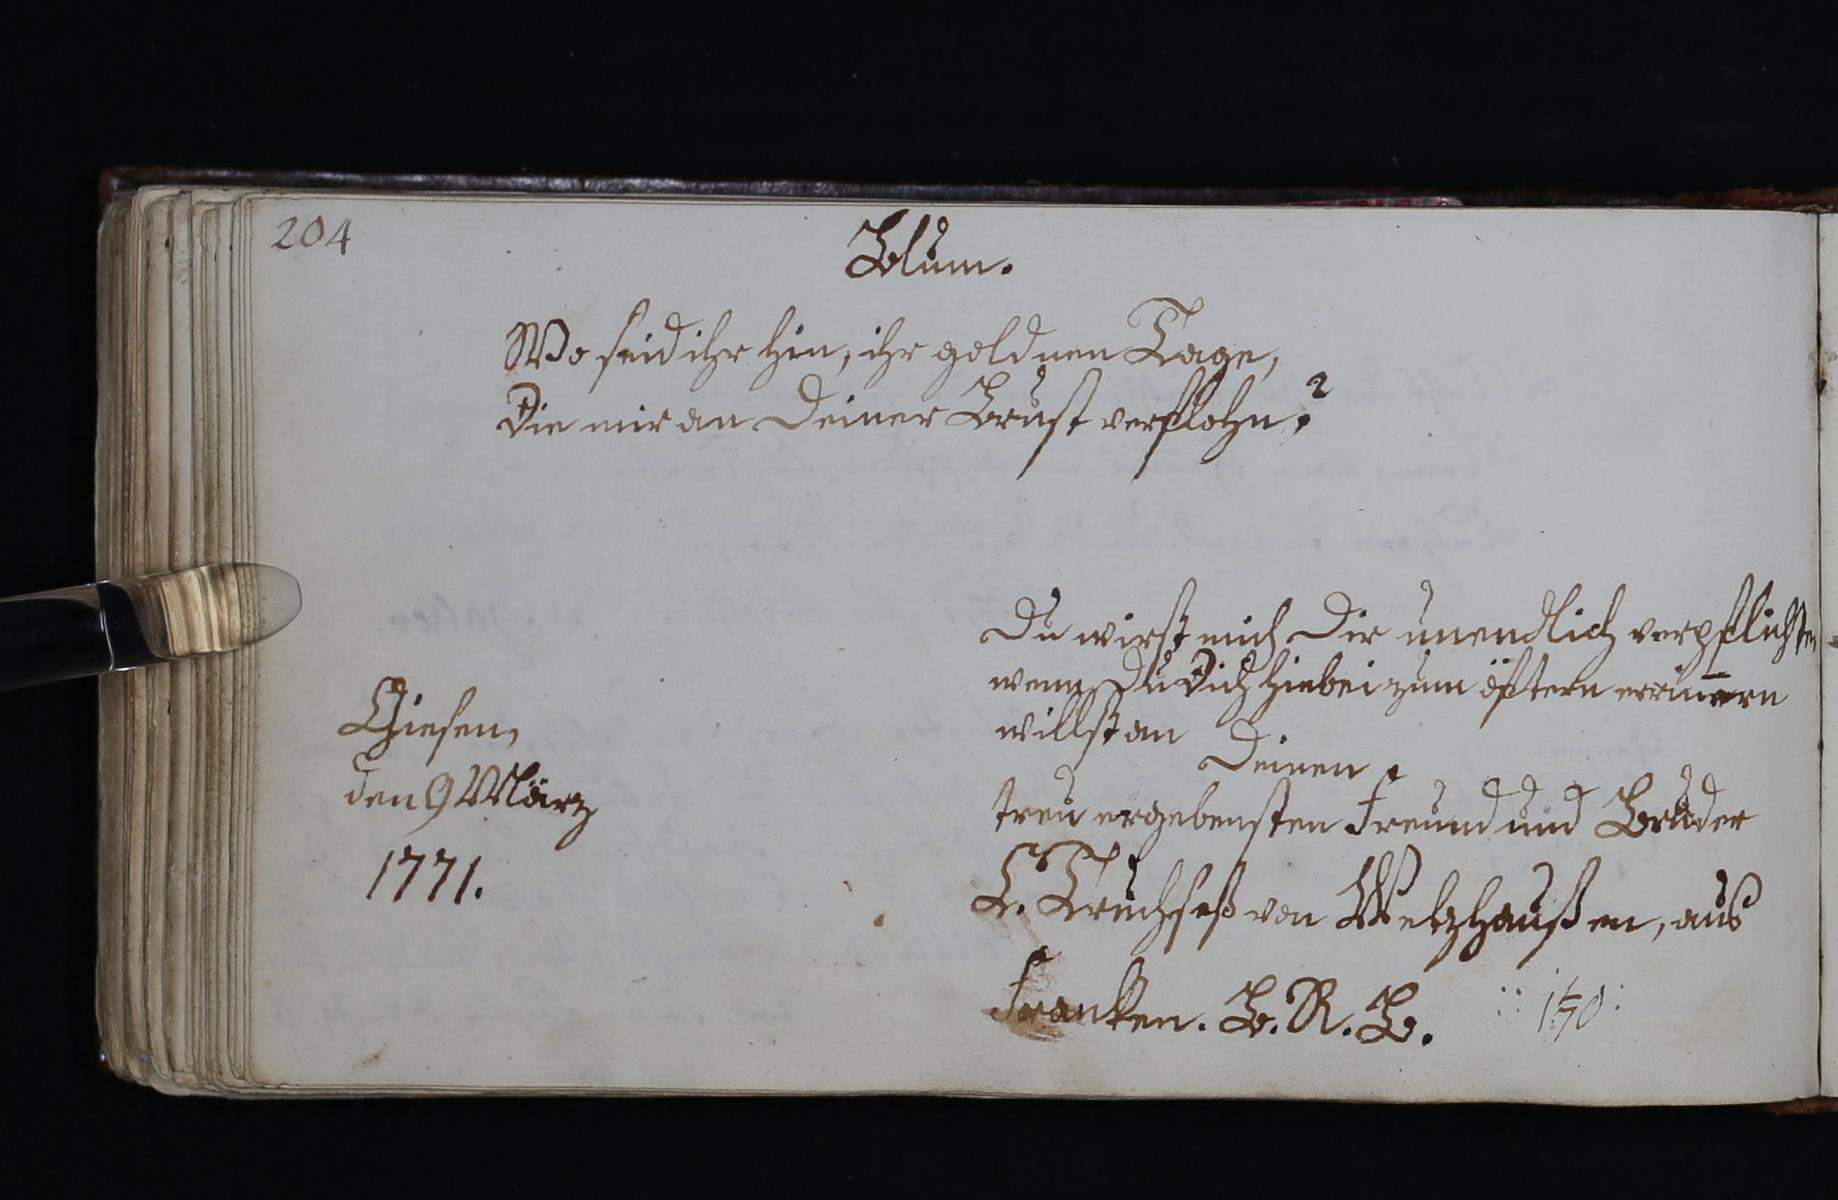 204
Blum.
Wo seid ihr hin, ihr goldnen Tage,
Die mir an Deiner Brust verflohn?
Du wirst mich Dir unendlich verpflichten,
wenn Du Dich hiebei zum öftern erinnern
willst an
Deinen
treu ergebensten Freund und Bruder
C. Truchseß von Wetzhaußen, aus
Franken. B. R. B.
Giesen,
den 9 März
1771.